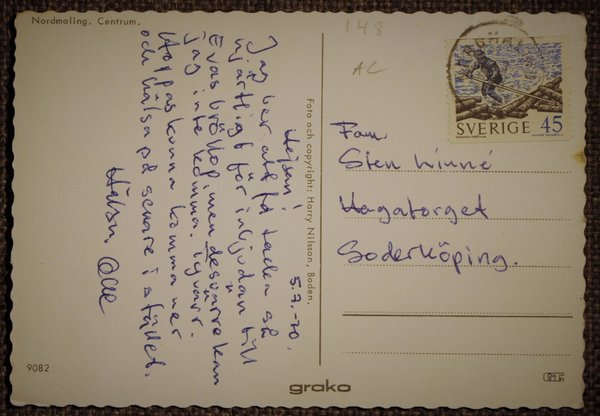 Nordmoling. Centrum.
148
AC
SVERIGE 45
5.7.-70.
Hejsan!
Jag ber att få tacka så
hjärtligt för inbjudan till
Evas bröllop, men desvärre kan
jag inte komma, tyvärr.
Hoppas kunna komma ner
och hälsa på senare i stället.
Hälsn. Olle
Foto och copyright: Harry Nilsson, Boden.
Fam.
Sten Linné
Hagatorget
Söderköping.
9082
grako